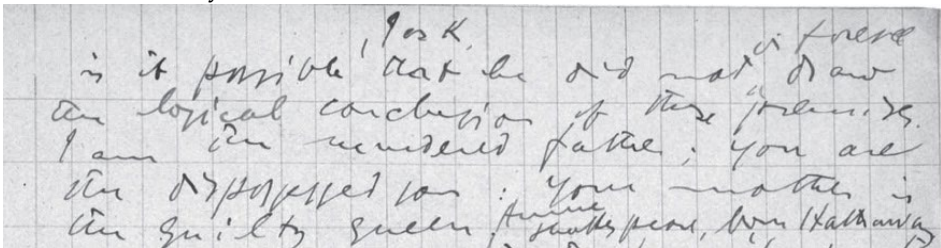 I ask,
or foresee
is it possible that he did not draw
the logical conclusion of those premises.
I am the murdered father: you are
the dispossessed son: your mother is
the guilty queen, Anne Shakespeare, born Hathaway